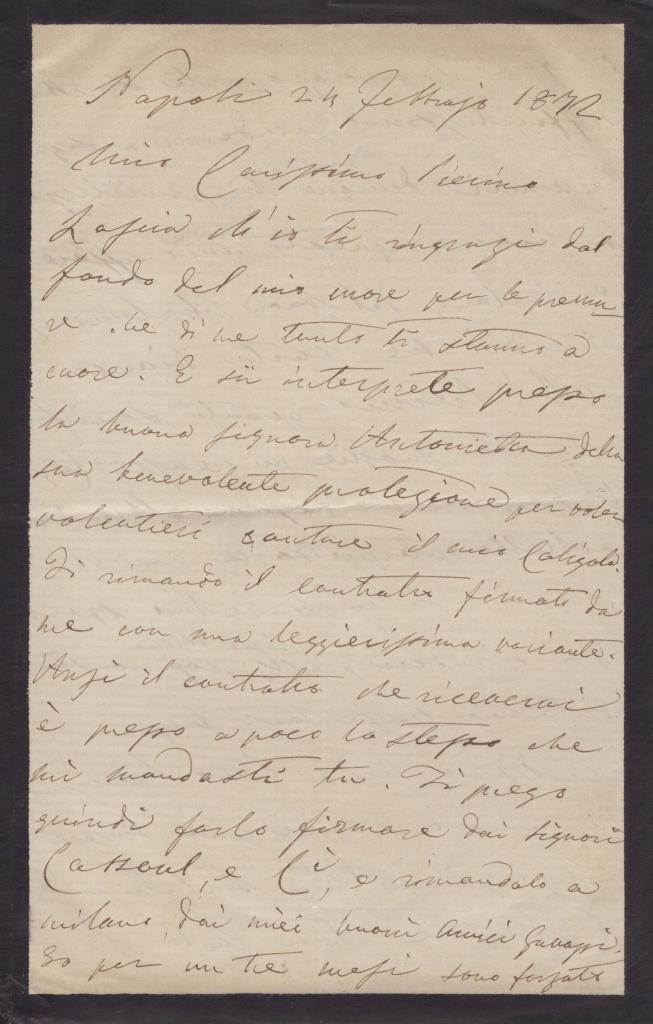 Napoli 24 Febbrajo 1872
Mio Carissimo Pierino
Lascia ch'io ti ringrazi dal
fondo del mio cuore per le premu-
re che di me tanto ti stanno a
cuore. E sii interprete presso
la buona signora Antonietta della
sua benevolente protezione per voler
volentieri cantare il mio Caligola.
Ti rimando il contratto firmato da
me con una leggierissima variante.
Anzi il contratto che riceverai
è presso a poco lo stesso che
mi mandasti tu. Ti prego
quindi farlo firmare dai signori
e Ci, e rimandalo a
Milano, dai miei buoni amici Gavazzi.
Io per un tre mesi sono forzato